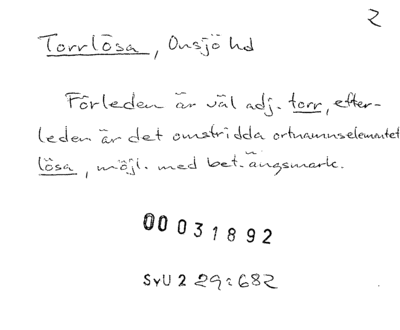 2
Torrlösa, Onsjö hd
Förleden är väl adj. torr, efter-
leden är det omstridda ortnamnselementet
lösa, möjl. med bet. ängsmark.
00 031892
SvU 2 29:682